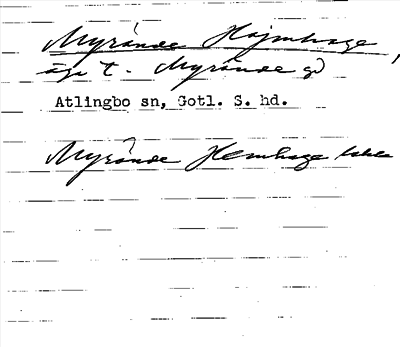 Myrände Hajmhage,
äga t. Myrände gd
Atlingbo sn, Gotl. S. hd.
Myrände Hemhage